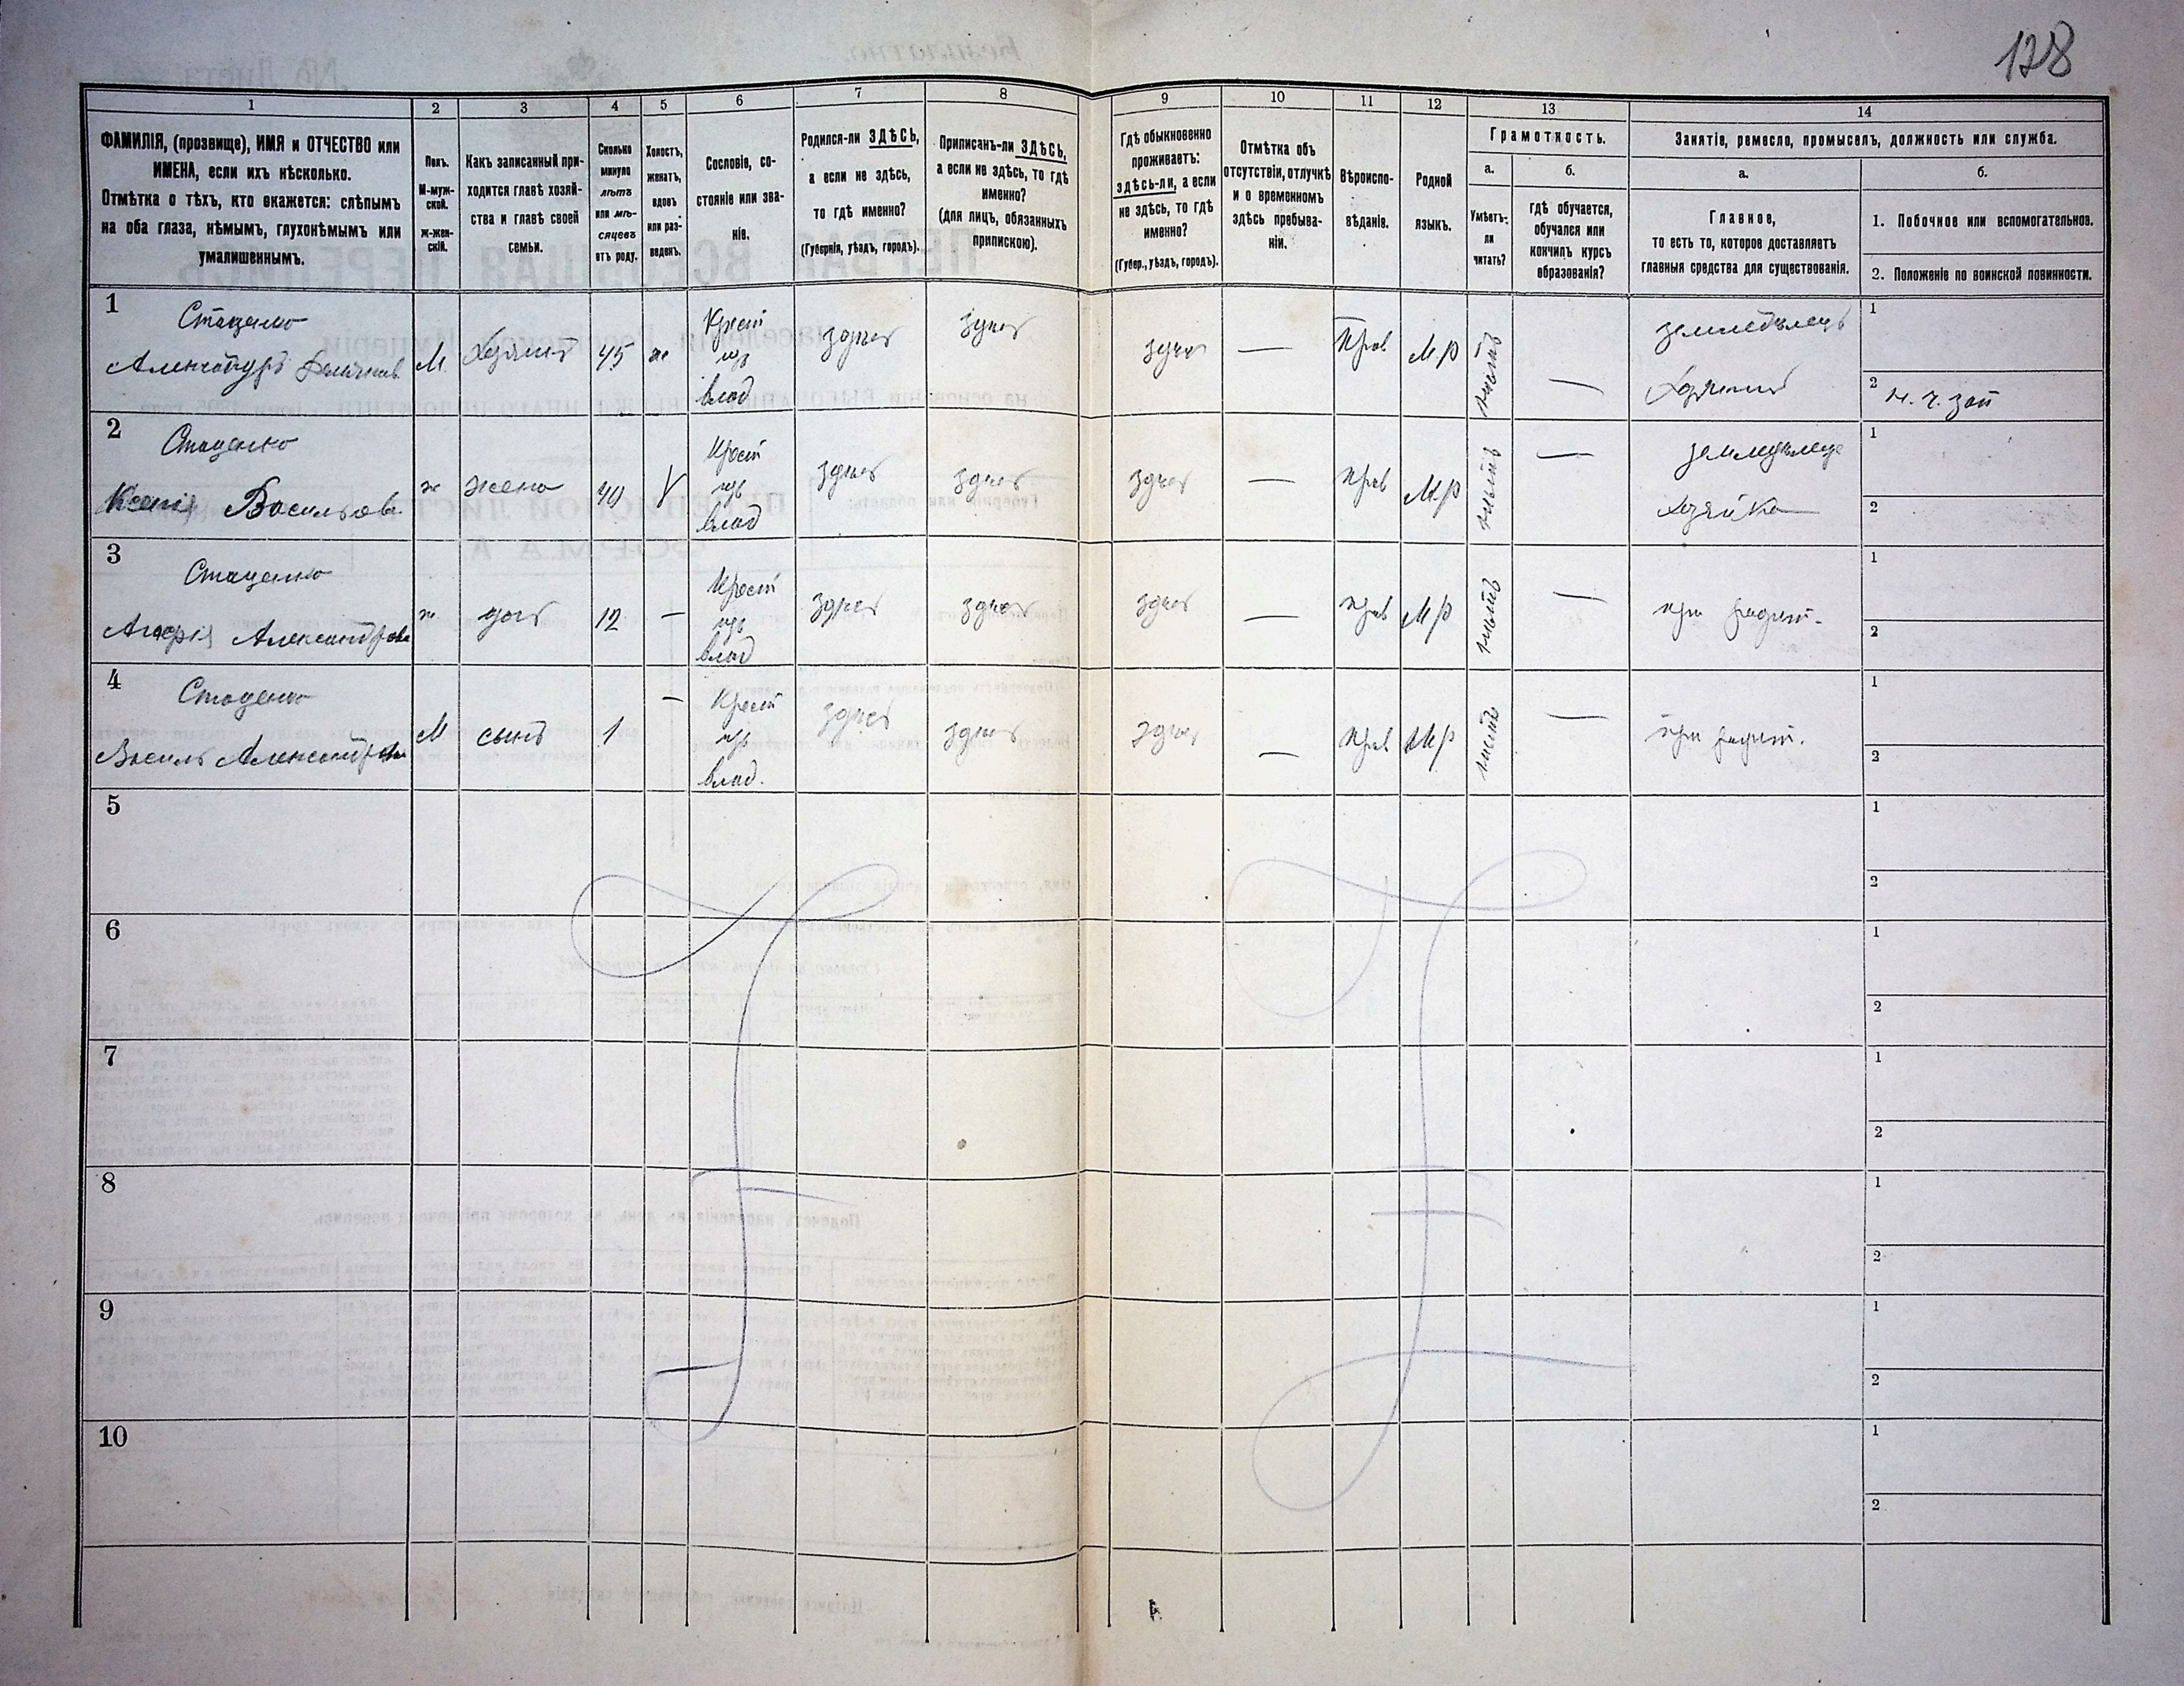 128
1
2
3
4
5
6
7
8
9
10
11
12
13
14
ФАМИЛІЯ, (прозвище), ИМЯ и ОТЧЕСТВО или
ИМЕНА, если ихъ нѣсколько.
Отмѣтка о тѣхъ, кто окажется: слѣпымъ
на оба глаза, нѣмымъ, глухонѣмымъ или
умалишеннымъ.
Полъ.
М-муж-
ской.
ж-жен-
скій.
Какъ записанный при-
ходится главѣ хозяй-
ства и главѣ своей
семьи.
Сколько
минуло
лѣтъ
или мѣ-
сяцевъ
отъ роду.
Холостъ,
женатъ,
вдовъ
или раз-
веденъ.
Сословіе, со-
стояніе или зва-
ніе.
Родился-ли ЗДѢСЬ,
а если не здѣсь,
то гдѣ именно?
(Губернія, уѣздъ, городъ).
Приписанъ-ли ЗДѢСЬ,
а если не здѣсь, то гдѣ
именно?
(для лицъ, обязанныхъ
припискою).
Гдѣ обыкновенно
проживаетъ:
здѣсь-ли, а если
не здѣсь, то гдѣ
именно?
(Губер., уѣздъ, городъ).
Отмѣтка объ
отсутствіи, отлучкѣ
и о временномъ
здѣсь пребыва-
ніи.
Вѣроиспо-
вѣданіе.
Родной
языкъ.
Грамотность.
а.
Умѣетъ-
ли
читать?
б.
гдѣ обучается,
обучался или
кончилъ курсъ
образованія?
Занятіе, ремесло, промыселъ, должность или служба.
а.
Главное,
то есть то, которое доставляетъ
главныя средства для существованія.
б.
1. Побочное или вспомогательное.
2. Положеніе по воинской повинности.
1
Стаценко
Александръ
М
Хозяинъ
45
ж
Крест
изъ
влад
здѣсь
здѣсь
здѣсь
—
Прав
М р
—
земледѣлецъ
Хозяинъ
1
2
2
Стаценко
Ксенія Васильев
ж
жена
40
Крест
изъ
влад
здѣсь
здѣсь
здѣсь
—
Прав
М р
—
Хозяйка
1
2
3
Стаценко
Александрова
ж
дочь
12
—
Крест
изъ
влад
здѣсь
здѣсь
здѣсь
—
Прав
М р
—
при родит.
1
2
4
Стаценко
Василь Александров
М
сынъ
1
—
Крест
изъ
влад.
здѣсь
здѣсь
здѣсь
—
Прав
М р
—
при родит.
1
2
5
1
2
6
1
2
7
1
2
8
1
2
9
1
2
10
1
2